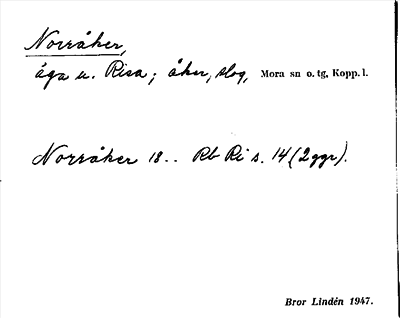 Norråker,
äga u. Risa; åker, slog, Mora sn o. tg, Kopp. l.
Norråker 18.. Rb Ri s. 14 (2 ggr).
Bror Lindén 1947.